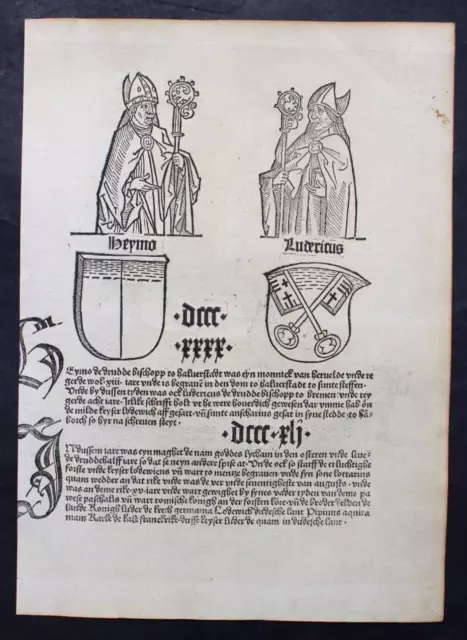 Heymo
Ludericus
dccc
xxxx
Eymo de drudde bisschopp to haluerstadt was eyn monnick van herueloe vnde re
gerde wol xiii iare vnde is begrauē in den dom to haluerstadt to sunte steffen
Vnde by dussen tyden was ock ludericus de drudde bisschop to bremen vnde rey
gerde acht iare
de milde keyser lodewich aff gesatt vñ sunte anscharius gesat in syne stedde to hā
borch so hyr na schreuen steyt
dccc xlj
N dussem iare was eyn maghet de nam goddes lycham in den osteren vnde leue
de drudde halff iare so dat se neyn andere spise at Vnde ock so starff de erluchtigste
forste vnde keyser lodewicus vñ wart to mentze begrauen vnde syn sone lotarius
quam wedder an dat rike vnde was de ver vnde seuentigeste van augusto vnde
was an deme rike xv iare vnde wart gewighet by synes vader tyden van deme pa
wese paschalis vñ wart romische konigh an der forsten köre vñ de broder delden de
lande
main Karle de kale franckrike dusse keyser lider de quam in dudesche lant